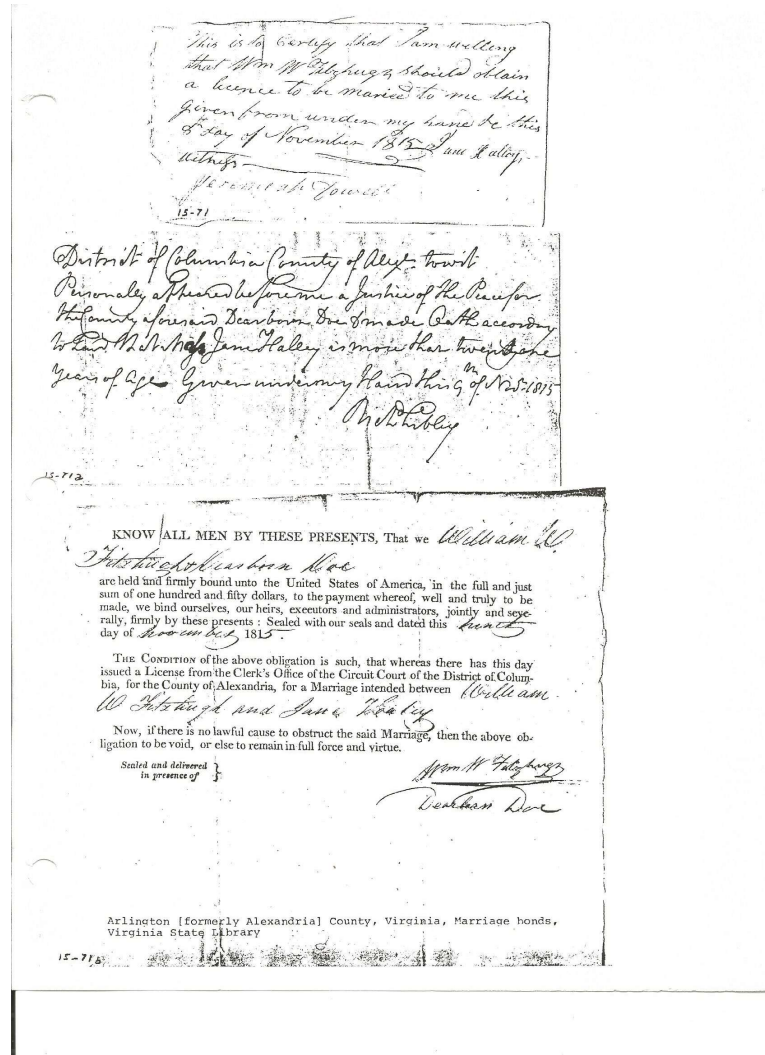 This is to Certify that I am willing
that Wm W Fitzhugh should obtain
a licence to be maried to me this
given from under my hand &c this
8 day of November 1815 Jane Haley
Witness
Jeremiah
15-71
District of Columbia County of Alexa. towit
Personally appeared before me a Justice of the Peace for
the County aforesaid Dearborn Doe & made Oath according
to Law that Jane Haley is more that twenty one
Years of Age Given under my Hand this 9th of Nov 1815
15-71a
KNOW ALL MEN BY THESE PRESENTS, That we William W.
Fitzhugh & Dearborn Doe
are held and firmly bound unto the United States of America, in the full and just
sum of one hundred and fifty dollars, to the payment whereof, well and truly to be
made, we bind ourselves, our heirs, executors and administrators, jointly and seve-
rally, firmly by these presents : Sealed with our seals and dated this
day of November 1815.
THE CONDITION of the above obligation is such, that whereas there has this day
issued a License from the Clerk's Office of the Circuit Court of the District of Colum-
bia, for the County of Alexandria, for a Marriage intended between William
W Fitzhugh and Jane Haley
Now, if there is no lawful cause to obstruct the said Marriage, then the above ob-
ligation to be void, or else to remain in full force and virtue.
Sealed and delivered
in presence of }
Wm W Fitzhugh
Dearborn Doe
Arlington [formerly Alexandria] County, Virginia, Marriage bonds,
Virginia State Library
15-71b